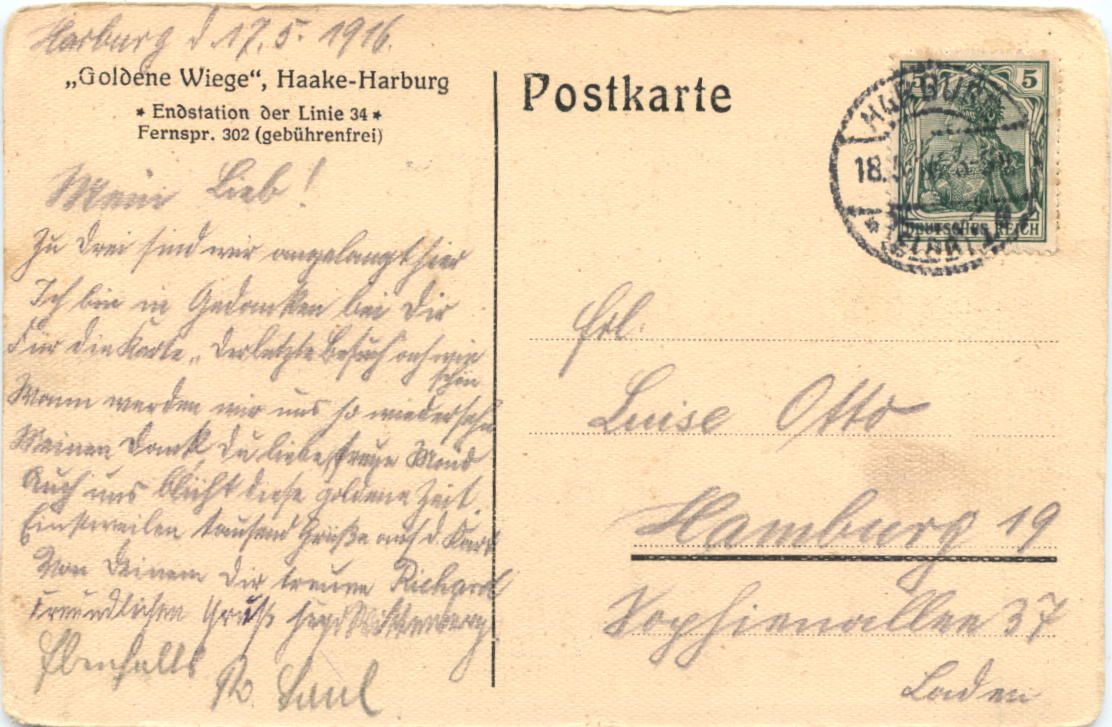 Harburg d 17.5. 1916.
„Goldene Wiege“, Haake-Harburg
* Endstation der Linie 34 *
Fernspr. 302 (gebührenfrei)
Postkarte
5 5
DEUTSCHES REICH
HARBURG
18.5.
Mein Lieb!
Zu drei sind wir angelangt hier
Ich bin in Gedanken bei Dir
Für die Karte „ Der letzte Besuch
schön
Wann werden wir uns so wiedersehn
Meinen Dank, Du liebe, treue Maid
Auch uns blüht diese goldene Zeit.
Einstweilen tausend Grüße auf d. Kart
Von Deinem Dir treuen Richard
Freundlichen Gruß Wittenberg
Ebenfalls
Paul
Frl.
Luise Otto
Hamburg 19
Sophienallee 37
Laden